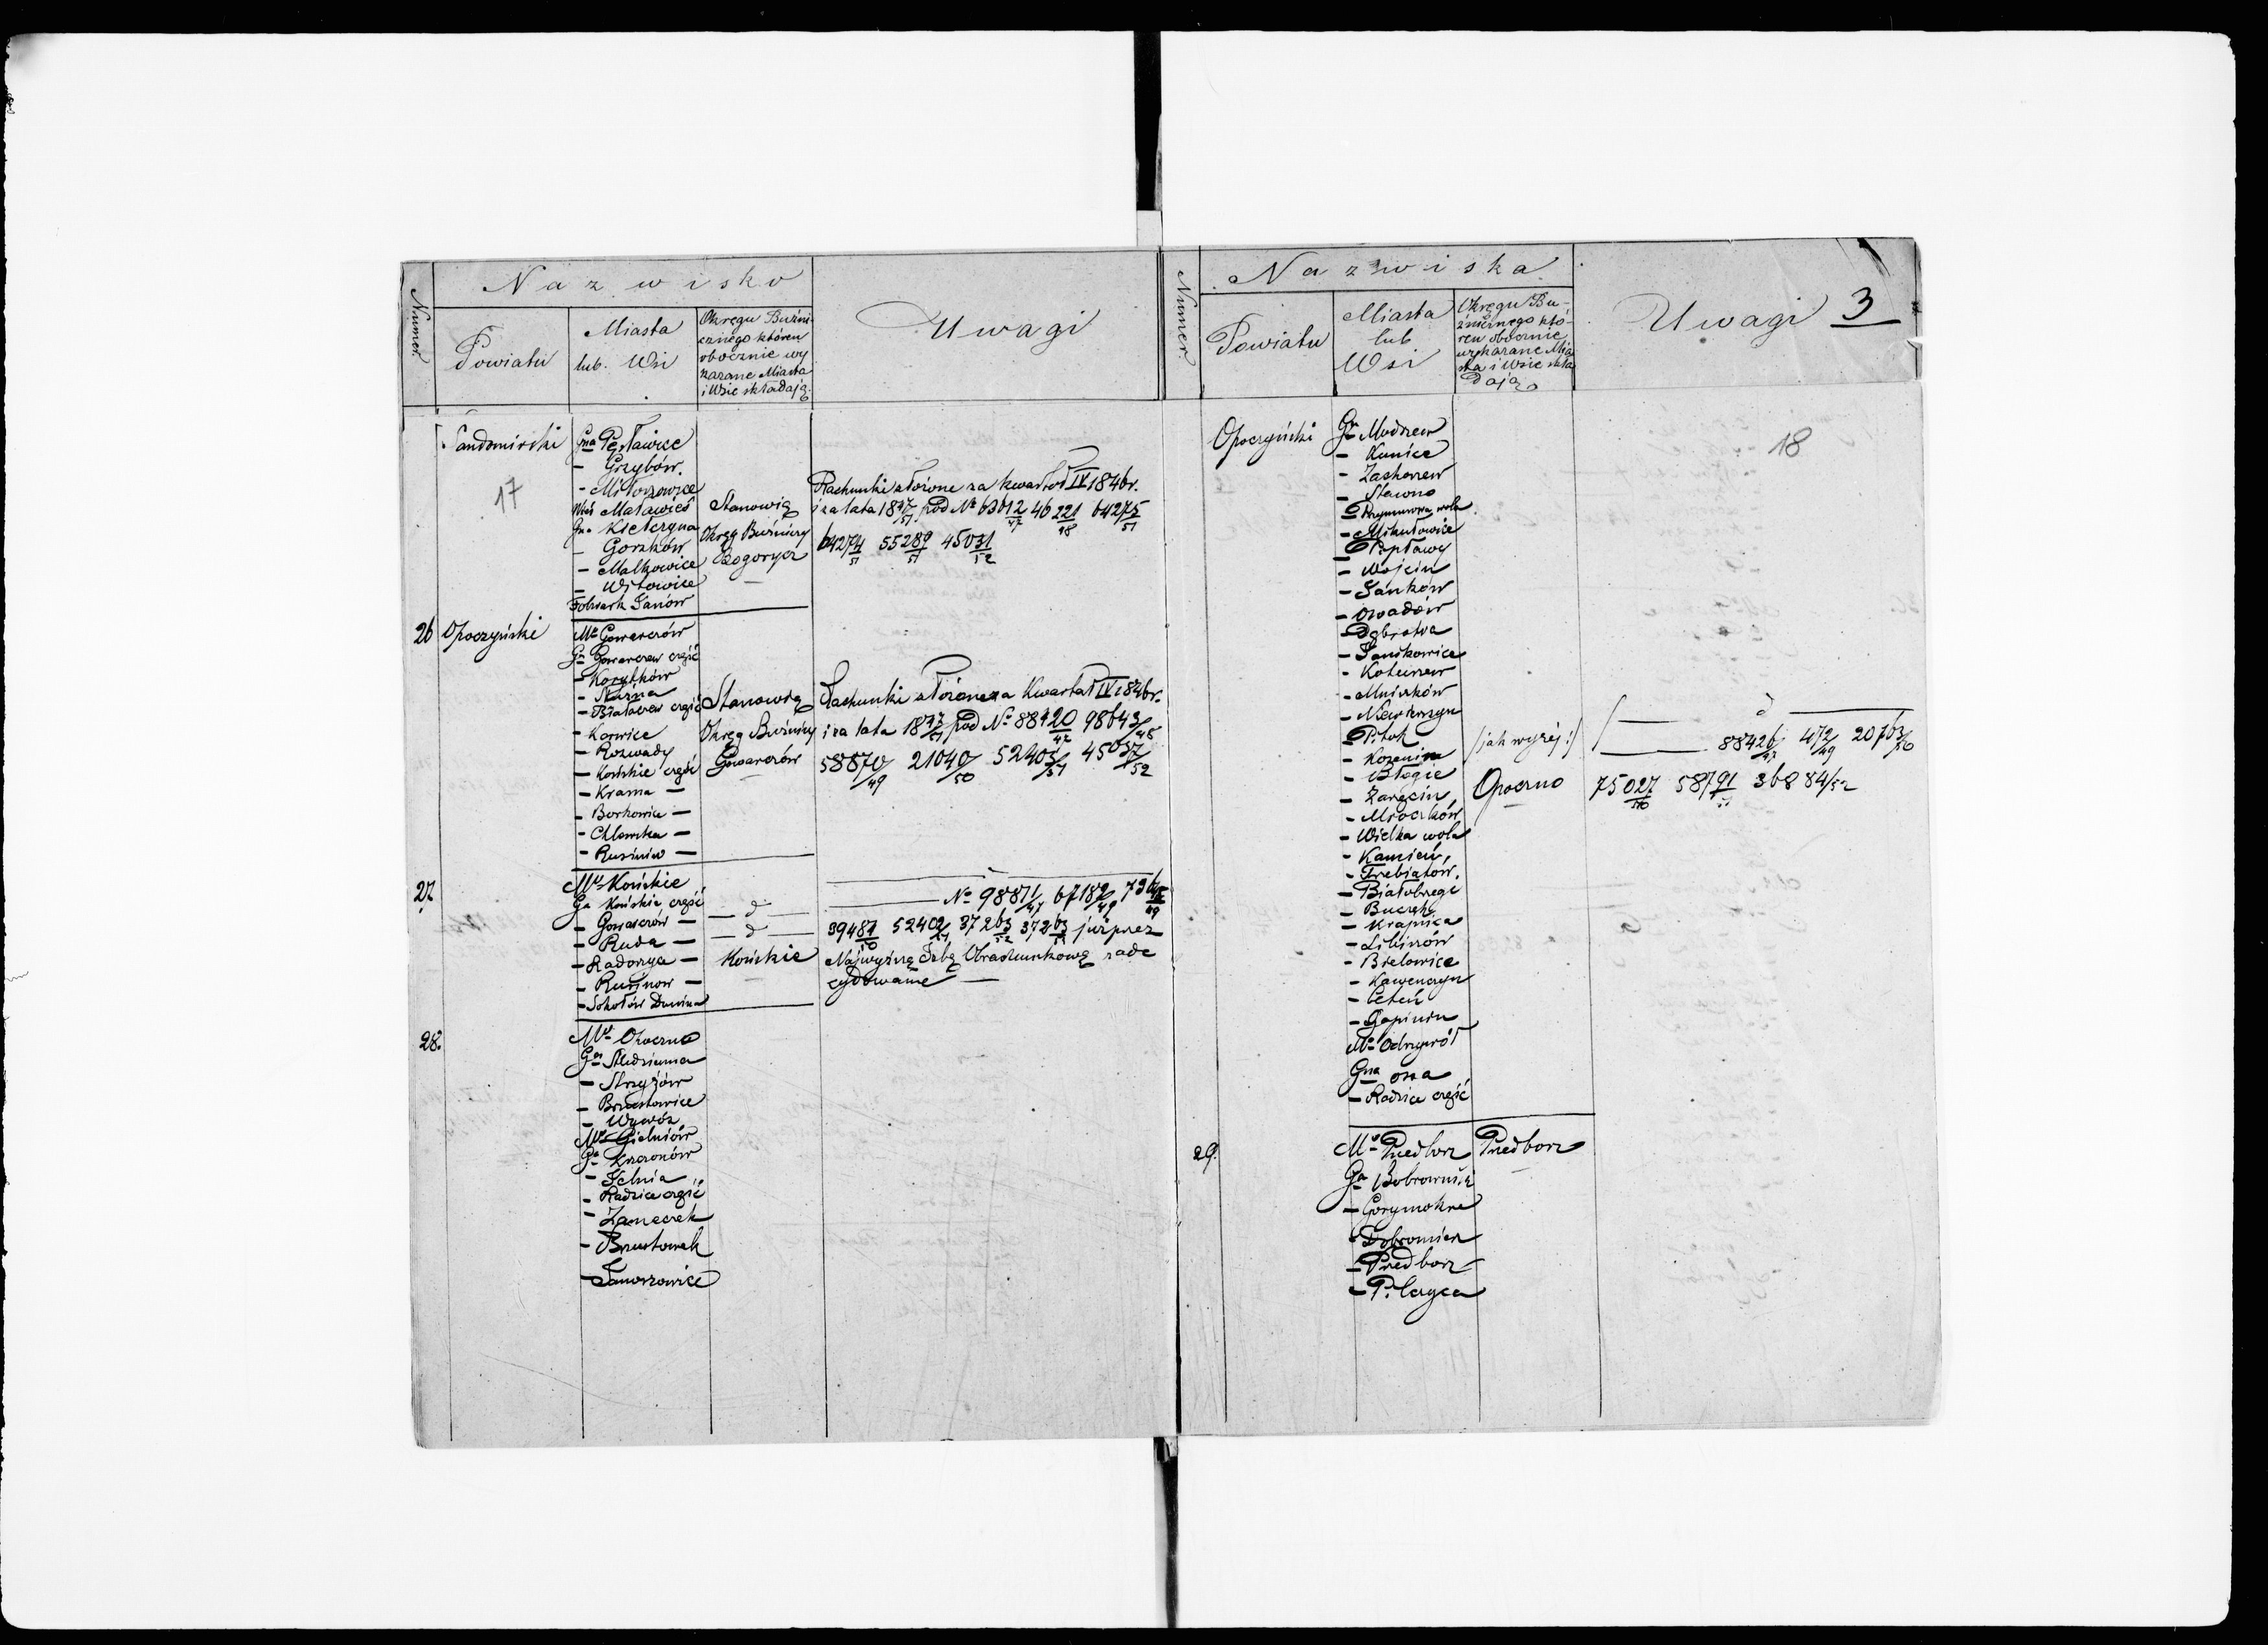 Numer
Nazwisko
Powiatu
Miasta
lub. Wsi
Okręgu Bużni
cznego któren
obocznie wy
kazane Miasta
i Wsie składają
Uwagi
Sandomirski
17
Gna Pęsławice
- Grzybów.
- Miłoszowice
Wieś Malawieś
Gna
- Gorzków
- Malkowice
- Witowice
Folwark Janów
Stanowią
Okręg Bużniczy
Zogorycz
Rachunki złożone za kwartał IV 1846r.
i za lata 1847/51 pod No 63612/47 46221/48 64275/51
64274/51 55289/51 45031/52
26 Opoczyński
Mto Gowarczów
Gna Gowarczew część
- Korytków
- Ruzna
- Białaczew część
- Korwice
- Rozwady
- Końskie część
- Krama -
- Borkowice -
- Chlewska -
- Rusinów -
Stanowią
Okręg Bużniczy
Gowarczów
Rachunki złożone za Kwartał IV 1846r.
i za lata 1847/51 pod No 88420/47 98643/48
58870/49 21040/50 52403/51 45037/52
27.
Mto Końskie
Ga Końskie część
- Gowarczów -
- Ruda -
- Radoszyce -
- Rusinow -
- Sokołów Dunina
- d -
- d -
Końskie
No 98871/47 67182/49
39481/50 52402/51 37263/52 37263/52 już przez
Najwyższą Izbę Obrachunkową zade
cydowane -
28.
Mto Opoczno
Gna Studzianna
- Strzyżów
- Brzustowice
- Wywóz
Mto Gielniów
Ga Krzczonów
- Jelnia
- Radzice część
- Zameczek
- Brzustowek
- Janoszowice
Numer
Nazwiska
Powiatu
Miasta
lub
Wsi
Okręgu Bu-
żnicznego któ-
ren obocznie
wykazane Mia
sta i Wsie skła
dają
Uwagi 3
18
Opoczyński
Gn Modrzew
- Kunice
- Zachorzew
- Sławno
- Prymusowa wola
- Mikułowice
- Popławy
- Wójcin
- Janków
- Owadów
- Dąbrowa
- Janikowice
- Kotuszew
- Mniszków
- Niewierszyn
- Potok
- Kozenin
- Błogie
- Zarzęcin
- Mroczków
- Wielka wola
- Kamień
- Trebiatów.
- Białobrzegi
- Buczek
- Krasnica
- Libiszów
- Bielowice
- Kawenczyn
- Ceteń
- Gapinin
Mto Odrzywół
Gna Ossa
- Radzice część
/:jak wyżej:/
Opoczno
d
88426/47 472/49 20763/50
75027/50 58791/51 36884/52
29.
Mto Przedborz
Gn Bobrowniki
- Gorymokre
- Dobromierz
- Przedborz
- Pilczyca
Przedborz